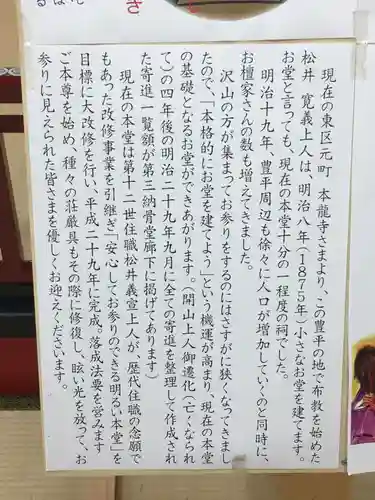 さ
現在の東区元町　本龍寺さまより、この豊平の地で布教を始めた
松井　寛義上人は、明治八年（1875年）小さなお堂を建てます。
お堂と言っても、現在の本堂十分の一程度の祠でした。
明治十九年、豊平周辺も徐々に人口が増加していくのと同時に、
お檀家さんの数も増えてきました。
沢山の方が集まってお参りをするのにはさすがに狭くなってきまし
たので、「本格的にお堂を建てよう」という機運が高まり、現在の本堂
の基礎となるお堂ができあがります。（開山上人御遷化（亡くなられ
て）の四年後の明治二十九年九月に全ての寄進を整理して作成され
た寄進一覧額が第三納骨堂廊下に掲げてあります）
現在の本堂は第十二世住職松井義宣上人が、歴代住職の念願で
もあった改修事業を引継ぎ「安心してお参りのできる明るい本堂」を
目標に大改修を行い、平成二十九年に完成。落成法要を営みます
ご本尊を始め、種々の荘厳具もその際に修復し、眩い光を放って、お
参りに見えられた皆さまを優しくお迎えくださいます。